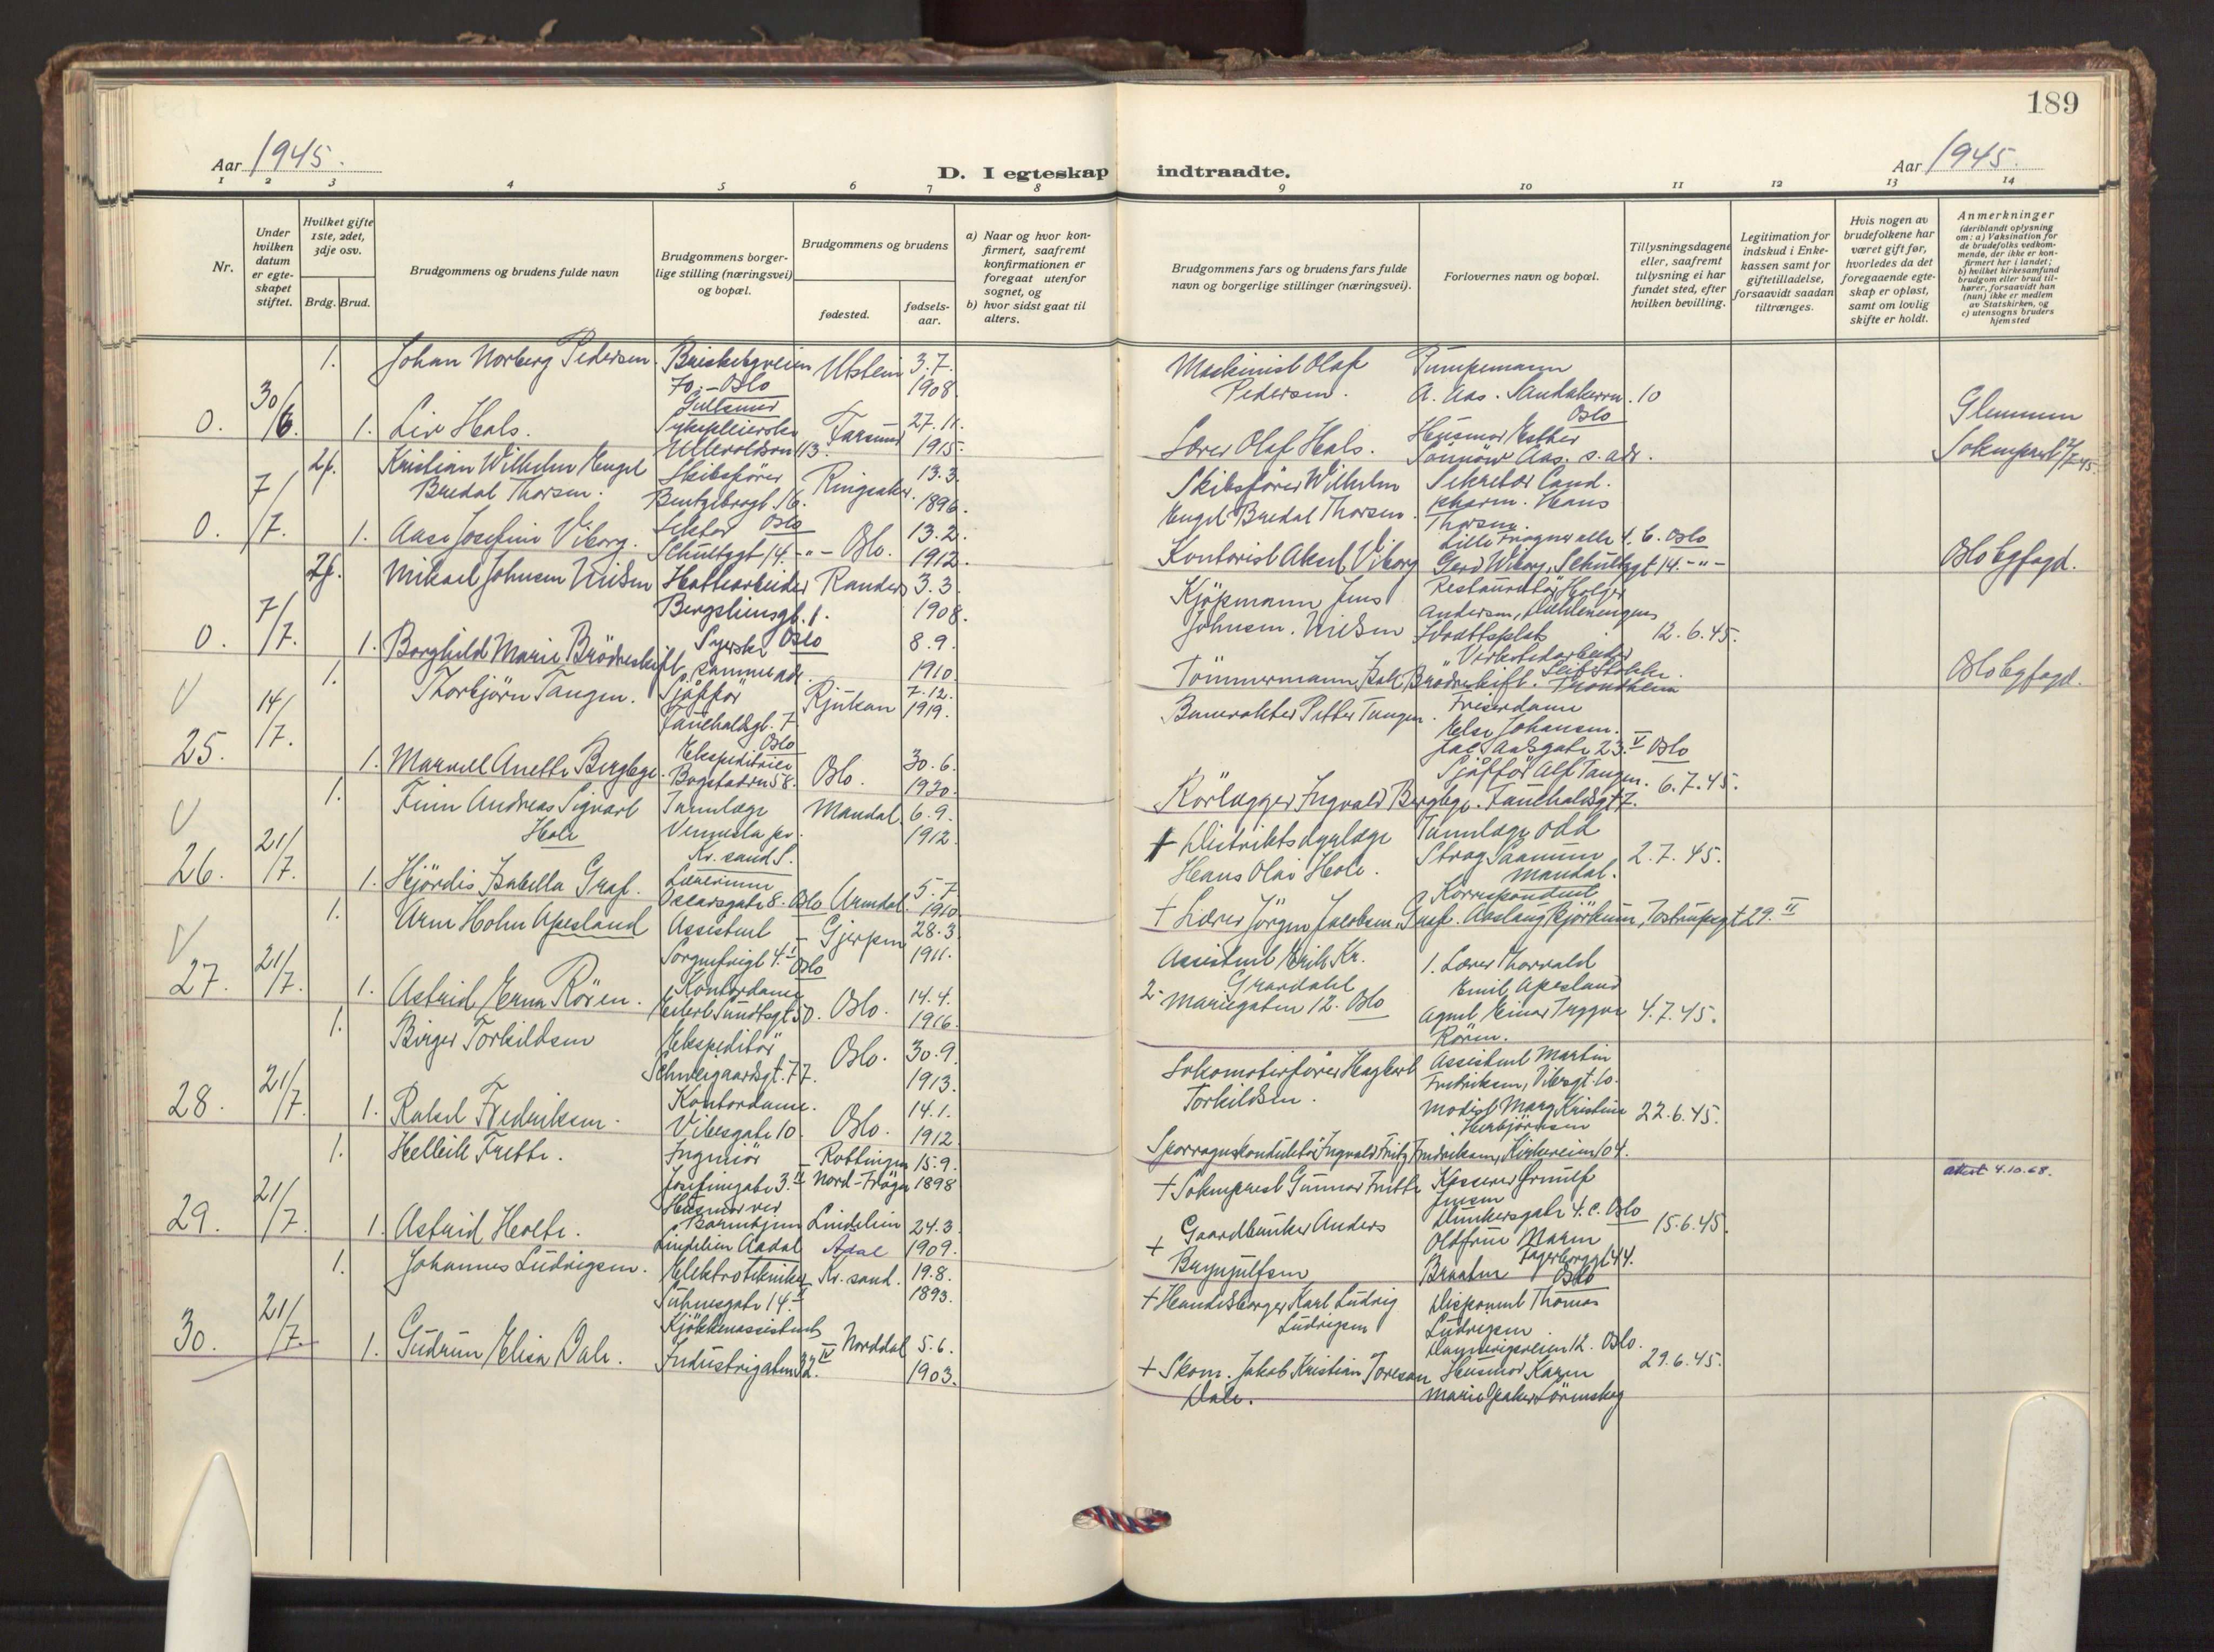 189
Aar 1945.
D. I egteskap indtraadte.
Aar 1945.
1 2 3 4 5 6 7 8 9 10 11 12 13 14
Nr.
Under hvilken datum er egteskapet stiftet.
Hvilket gifte 1ste, 2det, 3dje osv.
Brdg. Brud.
Brudgommens og brudens fulde navn
Brudgommens borgerlige stilling (næringsvei) og bopæl.
Brudgommens og brudens
fødested.
fødselsaar.
a) Naar og hvor konfirmert, saafremt konfirmationen er foregaat utenfor sognet, og
b) hvor sidst gaat til alters.
Brudgommens fars og brudens fars fulde navn og borgerlige stillinger (næringsvei).
Forlovernes navn og bopæl.
Tillysningsdagene eller, saafremt tillysning ei har fundet sted, efter hvilken bevilling.
Legitimation for indskud i Enkekassen samt for giftetilladelse, forsaavidt saadan tiltrænges.
Hvis nogen av brudefolkene har været gift før, hvorledes da det foregaaende egteskap er opløst, samt om lovlig skifte er holdt.
Anmerkninger (deriblandt oplysning om: a) Vaksination for de brudefolks vedkommende, der ikke er konfirmert her i landet; b) hvilket kirkesamfund brudgom eller brud tilhører, forsaavidt han (hun) ikke er medlem av Statskirken, og c) utensogns bruders hjemsted
1. Johan Norberg Pedersen. Briskebyveien 70. - Oslo Utstein 3.7. 1908
Maskinist Olaf Pedersen. A. Aas. Sandakervn. 10 Oslo
0. 30/6. 1. Liv Hals. Sykepleierske Ullevoldsvn 113. Farsund 27.11. 1915.
Lærer Olaf Hals. Husmor Esther Aas. s. adr.
Glemmen Sokneprest 7/7 45.
2f. Kristian Wilhelm Engel Bredal Thorsen. Skibsfører Bentzebrogt. 16. Oslo Ringsaker. 13.3. 1896.
Skibsfører Wilhelm Engel Bredal Thorsen. Sekretær Cand. pharm. Hans Thorsen. Lille Frogner alle 4. b. Oslo
0. 7/7. 1. Aase Josefine Viborg. Schultzgt 14. -"- Oslo. 13.2. 1912.
Kontorist Aksel Viborg Gerd Wiborg, Schultzgt 14. -"-
Oslo byfogd.
2f. Mikael Johnsen Nielsen Hattearbeider Bergsliensgt. 1. Oslo Randers 3.3. 1908.
Kjöpmann Jens Johnsen. Nielsen Restauratör Holger Andersen, Idrættsplats 12.6.45.
0. 7/7. 1. Borghild Marie Brödreskift. Syerske samme adr. 8.9. 1910
Tömmermann Isak Brödreskift. Verkstedarbeider Trondheim
Oslo byfogd.
V
1. Thorbjörn Tangen. Sjåfför Fauchaldsgt. 7 Oslo Rjukan 7.12. 1919.
Petter Tangen. Else Johansen. Jac. Aalsgate 23. V Oslo
25. 14/7. 1. Marvell Anette Bergbye. Ekspeditrise Bogstadvn 58. Oslo. 30.6. 1920.
Rörlegger Ingvald Bergbye. Sjåfför Alf Tangen. Fauchaldsgt 7. 6.7.45.
V
1. Finn Andreas Sigvart Hole Tannlæge Vennesla pr. Kr.sand S. Mandal. 6.9. 1912.
+ Distriktsdyrlæge Hans Olai Hole. Tannlæge Odd Strøg Saanum Mandal. 2.7.45.
26. 21/7. 1. Hjördis Isabella Graf. Lærerinne Oscarsgate 8. Oslo Arendal. 5.7 1910
+ Lærer Jörgen Jacobsen Graf. Korrespondent Aaslaug Bjørkum, Tostrupsgt 29. II
V
1. Arne Holm Apesland Assistent Sorgenfrigt 4. I Oslo Gjerpen 28.3. 1911.
Assistent Erik Kr. Grardahl 1. Lærer Thorvald Emil Apesland
27. 21/7. 1. Astrid Erna Rören. Kontordame Eilert Sundtsgt 50. Oslo. 14.4. 1916.
2. Mariegaten 12. Oslo Agent Einar Yngvar Rören. 4.7.45.
1. Birger Torkildsen Ekspeditör Schweigaardsgt. 77. Oslo. 30.9. 1913.
Lokomotivfører Hagbart Torkildsen. Assistent Martin Fredriksen, Vibesgt. 10.
28. 21/7. 1. Rakel Fredriksen. Kontordame. Vibesgate 10. Oslo. 14.1. 1912
Sporvognskonduktör Ingvald Fritz Fredriksen, Modist Marg. Kristine Herbjörnsen Kirkeveien 104. 22.6.45.
1. Helleik Frette. Ingeniör Josefinegate 3. II Kottingen Nord-Fröya 15.9. 1898
+ Sokneprest Gunnar Frette Kasserer Jensen Munkersgate 4. c. Oslo
atest 4.10.68.
29. 21/7. 1. Astrid Holte. Husmor ved Barnehjem Lindelien Aadal Lindelien Ådal 24.3. 1909.
+ Gaardbruker Anders Brynjulfsen Oldfrue Maren Braaten Fagerborggt 44. Oslo 15.6.45.
1. Johannes Ludvigsen. Elektrotekniker Suhmsgate 14. II Kr.sand. 19.8. 1893.
+ Handelsborger Karl Ludvig Ludvigsen Disponent Thomas Ludvigsen. 12. Oslo.
30. 21/7. 1. Gudrun Elisa Dale. Kjökkenassistent Industrigaten 32. IV Norddal 5.6. 1903.
+ Skom. Jakob Kristian Joresson Dale. Husmor Karen Marie Sörensby 29.6.45.